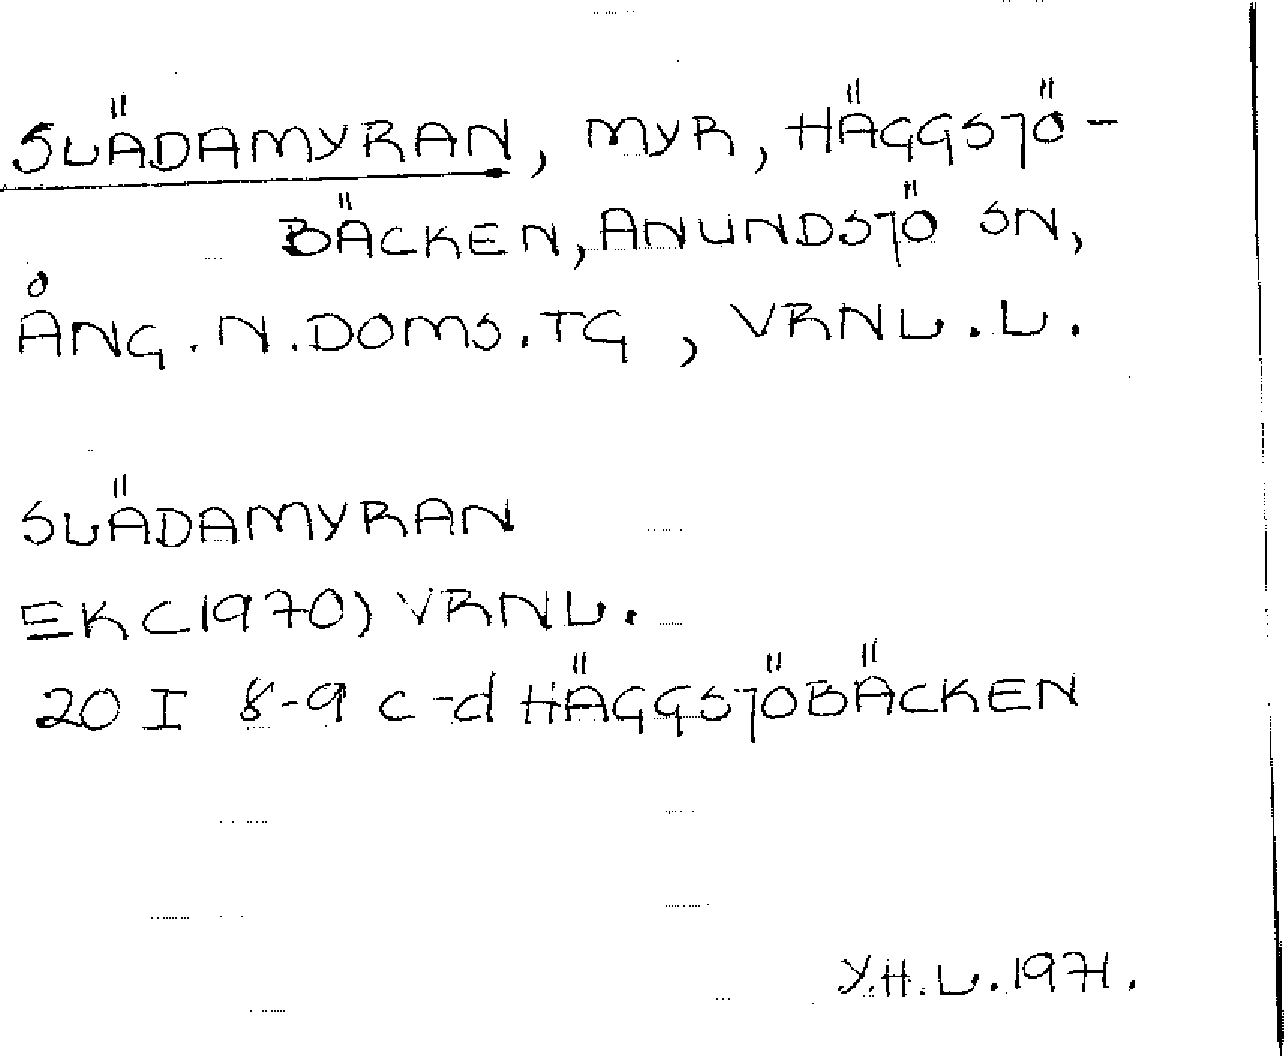 SLÄDAMYRAN, MYR, HÄGGSJÖ-
BÄCKEN, ANUNDSJÖ SN,
ÅNG. N. DOMS. TG, VRNL. L.
SLÄDAMYRAN
EK (1970) VRNL.
20 I 8-9 c-d HÄGGSJÖBÄCKEN
Y.H.L. 1971.